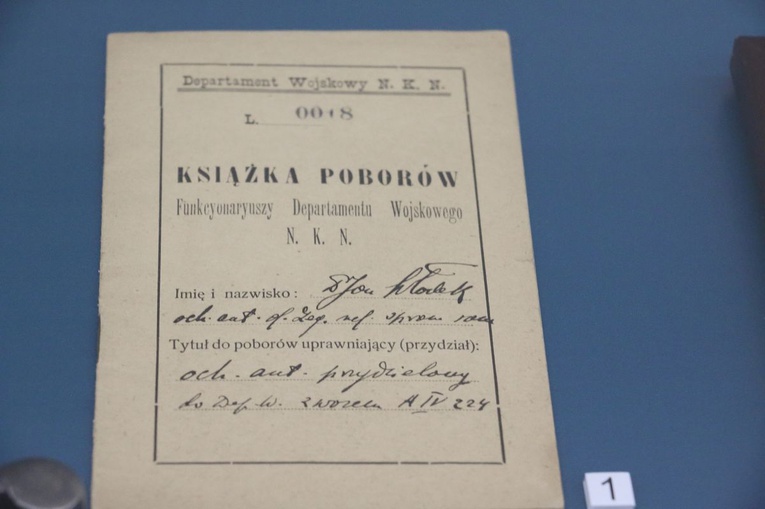 Departament Wojskowy N. K. N.
L. 0018
KSIĄŻKA POBORÓW
Funkcyonaryuszy Departamentu Wojskowego
N. K. N.
Imię i nazwisko: Dr Jan Włodek
och. ant. of. Leg. ref. spraw
Tytuł do poborów uprawniający (przydział):
och. ant. przydzielony
do Dep. W. IV 224
1